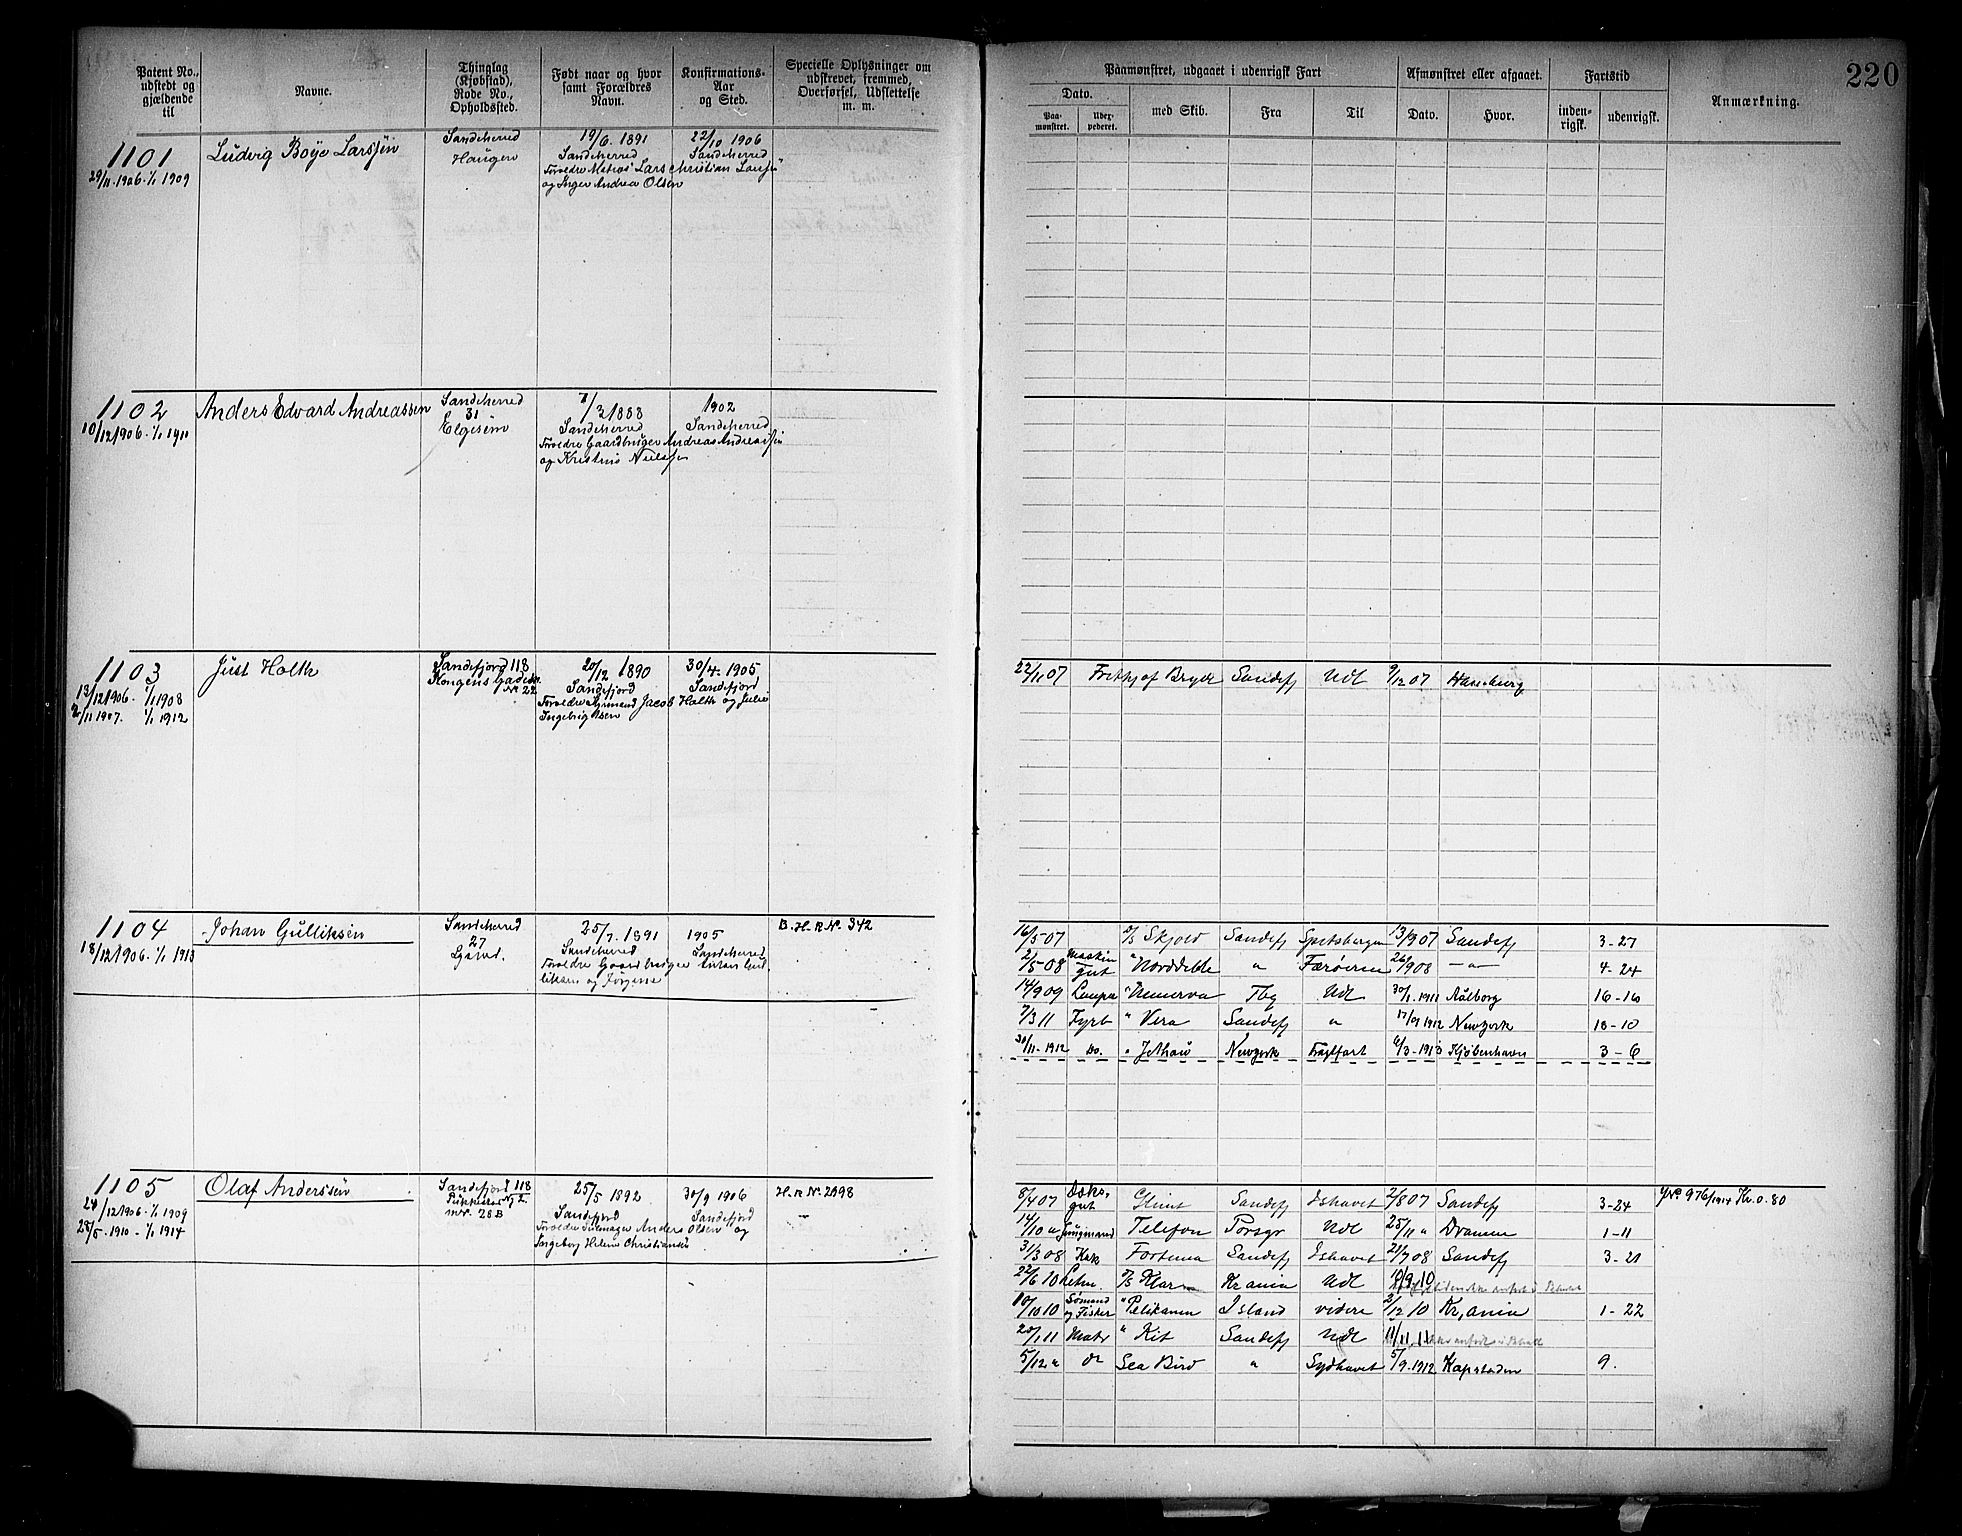 220
Patent No., udstedt og gjældende til
Navne.
Thinglag (Kjøbstad), Rode No., Opholdssted.
Født naar og hvor samt Forældres Navn.
Konfirmations-Aar og Sted.
Specielle Oplysninger om udskrevet, fremmed, Overførsel, Udslettelse m. m.
Paamønstret, udgaaet i udenrigsk Fart
Dato.
Paa-mønstret.
Udex-pederet.
med Skib.
Fra
Til
Afmønstret eller afgaaet.
Dato.
Hvor.
Fartstid
inden-rigsk.
udenrigsk.
Anmærkning.
1101
29/11.1906. 1/1 1909
Ludvig Boye Larssen
Sandeherred
Haugen
19/6. 1891
Sandeherred
22/10 1906
Sandeherred
og Inger Andrea Olsen
1102
10/12 1906. 1/1 1910
Anders Edvard Andreassen
Sandeherred
31
Elgesem
7/3 1888
Sandeherred
Forældre Gaardbruger Andreas Andreassen
og Kristine Nielsen
1902
Sandeherred
1103
13/12 1906. 1/1 1908
2/11 1907. 1/1 1912
Just Holth
Sandefjord 118
Kongens Gade
No 22
20/12 1890
Sandefjord
Forældre Styrmand Jacob Holth og Julie
30/4. 1905
Sandefjord
22/11 07 Frithjof Bryde Sandefj Udl 9/12 07 Hamburg
1104
18/12 1906. 1/1 1913
Johan Gulliksen
Sandeherred
27
25/7. 1891
Sandeherred
Forældre Gaardbruger Anton Gul
liksen og Jørgine
1905
Sandeherred
B. H. R No. 342
16/5 07 D/S Skjold Sandefj Spitsbergen 13/9 07 Sandefj 3-27
2/5-08 Maskin gut " Norddeble " Færøerne 26/9 08 — " — 4-24
14/9 09 Lempe " Minerva Tbg Udl 30/1. 1911 Aalborg 16-16
7/3 11 Fyrb " Vera Sandefj " 17/9 1912 Newyork 18-10
30/11-1912 Do. " Jethou Newyork Fragtfart 6/3-1913 Kjøbenhavn 3-6
1105
24/12 1906. 1/1 1909
28/5. 1910 - 1/1 1914
Olaf Anderssen
Sandefjord 118
No 2
28 B
25/5 1892
Sandefjord
Anders Olsen og
Ingeborg Helene Christiansen
30/9 1906
Sandefjord
H. R No. 2498
8/4 07 Dæks-gut Sandefj Ishavet 2/8 07 Sandefj 3-24 JNo 976/1914 Kr. 0.80
14/10 " Jungmand Telefon Porsgr Udl 25/11 " Drammen 1-11
31/3 08 Kok Fortuna Sandefj Ishavet 21/7 08 Sandefj 3-21
22/6 10 Letm. D/S Klar Kr ania Udl 10/9 10
10/10 10 Sømand og Fisker " Pelikanen Island videre 2/12 10 Kr, ania 1-22
20/1 11 Matr " Kit Sandefj Udl 11/11. 11
5/12 " do Sea Bird " Sydhavet 5/9. 1912 Kapstaden 9.